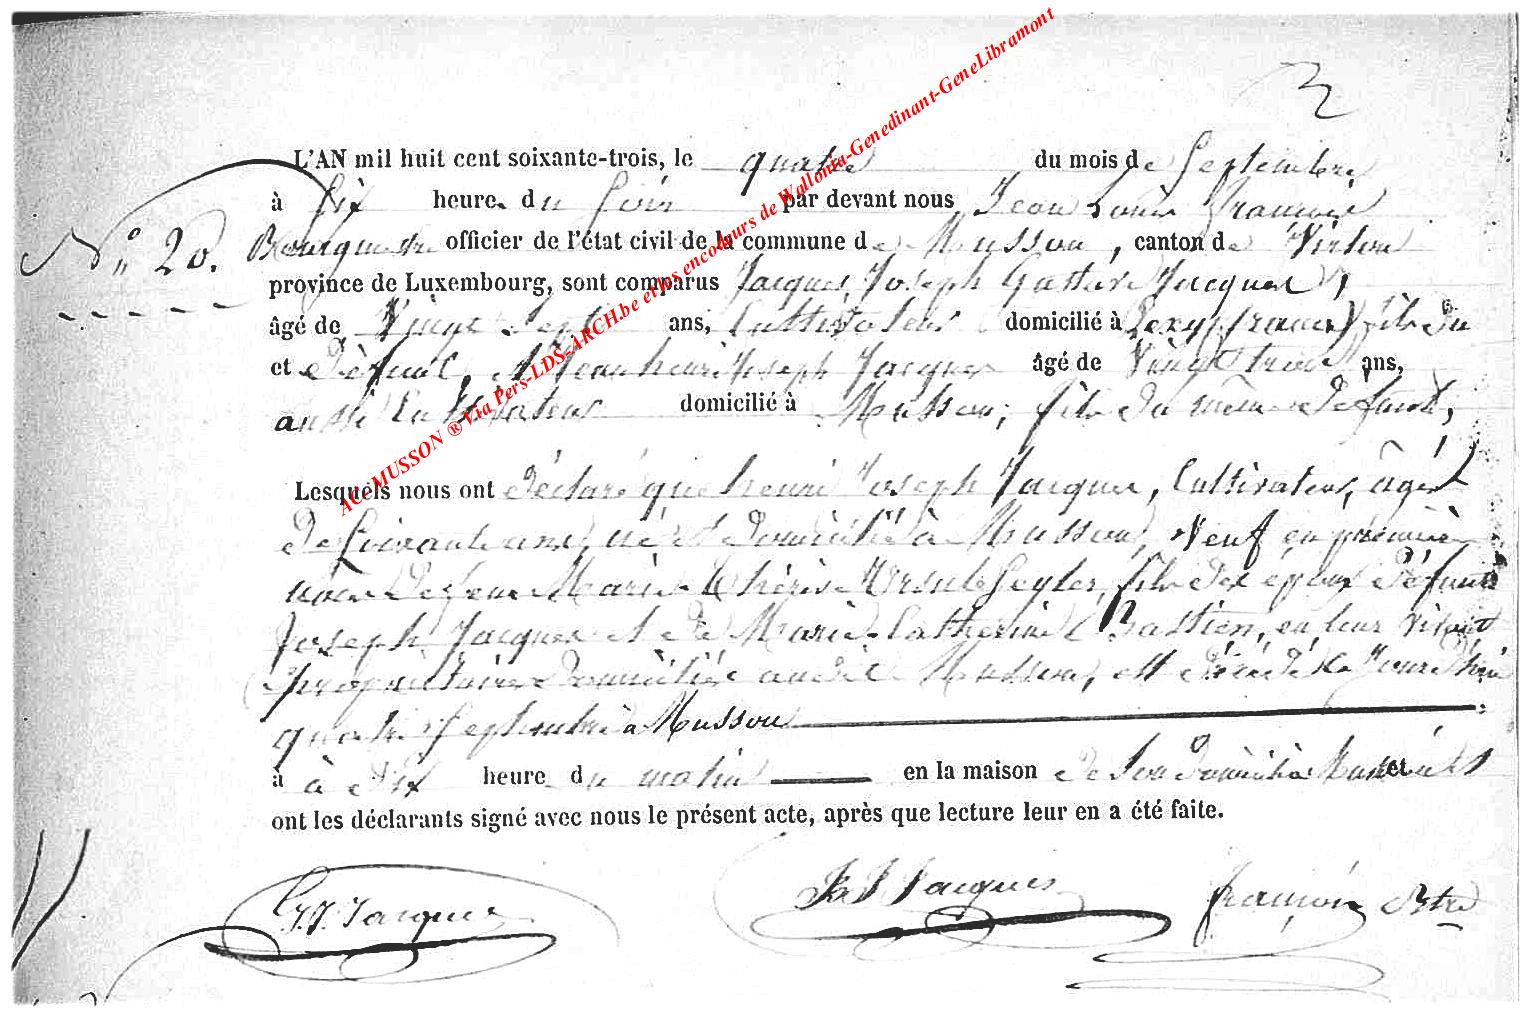 L'AN mil huit cent soixante-trois, le quatre du mois de Septembre
à six heure du Soir par devant nous Jean Louis François
N° 20. Bourgmestre officier de l'état civil de la commune de Musson, canton de Virton
province de Luxembourg, sont comparus Jacques Joseph Gustave Jacques,
âgé de Vingt Sept ans, Cultivateur domicilié à (france) fils du
et défunt, et Jean henri Joseph Jacques âgé de Vingt trois ans,
aussi Cultivateur domicilié à Musson, fils du même défunt,
Lesquels nous ont déclaré que henri Joseph Jacques, Cultivateur, âgé
de Soixante ans, né et domicilié à Musson, Veuf en première
noce de feue Marie Thérèse Ursule fils des époux défunts
Joseph Jacques et de Marie-Catherine Bastien, en leur vivant
propriétaires domiciliés audit Musson, est décédé ce Jourd'hui
quatre Septembre à Musson
à à dix heure du matin en la maison de Son domicile à Musson et
ont les déclarants signé avec nous le présent acte, après que lecture leur en a été faite.
G. J. Jacques J. h. J Jacques françois Bstre
AC. MUSSON ® Via Pers-LDS-ARCH.be et les encodeurs de Wallonia-Genedinant-GeneLibramont